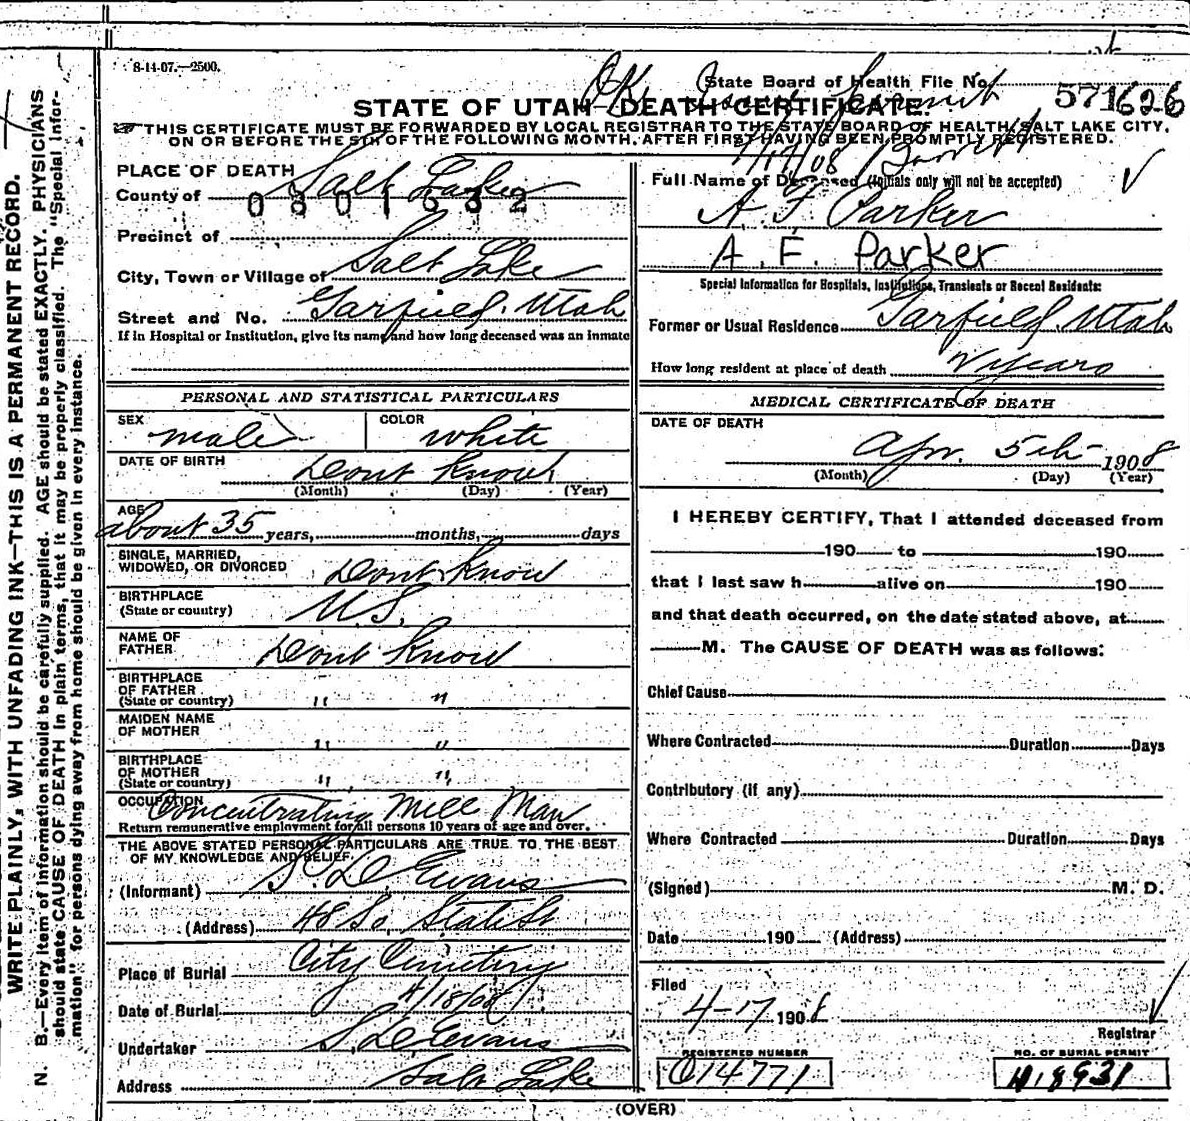 8-14-07.—2500.
State Board of Health File No. 571626
OK
STATE OF UTAH—DEATH CERTIFICATE.
THIS CERTIFICATE MUST BE FORWARDED BY LOCAL REGISTRAR TO THE STATE BOARD OF HEALTH, SALT LAKE CITY,
ON OR BEFORE THE 5TH OF THE FOLLOWING MONTH, AFTER FIRST HAVING BEEN PROMPTLY REGISTERED.
WRITE PLAINLY, WITH UNFADING INK—THIS IS A PERMANENT RECORD.
N. B.—Every item of information should be carefully supplied. AGE should be stated EXACTLY. PHYSICIANS
should state CAUSE OF DEATH in plain terms, that it may be properly classified. The "Special Infor-
mation" for persons dying away from home should be given in every instance.
PLACE OF DEATH
County of Salt Lake
0801632
Precinct of
City, Town or Village of Salt Lake
Street and No. Garfield, Utah
If in Hospital or Institution, give its name and how long deceased was an inmate
PERSONAL AND STATISTICAL PARTICULARS
SEX male
COLOR white
DATE OF BIRTH Dont Know
(Month) (Day) (Year)
AGE about 35 years, months, days
SINGLE, MARRIED,
WIDOWED, OR DIVORCED Dont Know
BIRTHPLACE
(State or country) U.S.
NAME OF
FATHER Dont Know
BIRTHPLACE
OF FATHER
(State or country) " "
MAIDEN NAME
OF MOTHER " "
BIRTHPLACE
OF MOTHER
(State or country) " "
OCCUPATION Concentrating Mill Man
Return remunerative employment for all persons 10 years of age and over.
THE ABOVE STATED PERSONAL PARTICULARS ARE TRUE TO THE BEST
OF MY KNOWLEDGE AND BELIEF.
(Informant) S. D. Evans
(Address) 48 So. State St
Place of Burial City Cemetery
Date of Burial 4/18/08
Undertaker S. D. Evans
Address Salt Lake
4/17/08
Full Name of Deceased (Initials only will not be accepted)
A. F. Parker
A. F. Parker
Special Information for Hospitals, Institutions, Transients or Recent Residents:
Former or Usual Residence Garfield, Utah
How long resident at place of death years
MEDICAL CERTIFICATE OF DEATH
DATE OF DEATH
Apr. 5th 1908
(Month) (Day) (Year)
I HEREBY CERTIFY, That I attended deceased from
190 to 190
that I last saw h alive on 190
and that death occurred, on the date stated above, at
M. The CAUSE OF DEATH was as follows:
Chief Cause
Where Contracted Duration Days
Contributory (if any)
Where Contracted Duration Days
(Signed) M. D.
Date 190 (Address)
Filed
4-17 1908
Registrar
REGISTERED NUMBER
014771
NO. OF BURIAL PERMIT
H18931
(OVER)